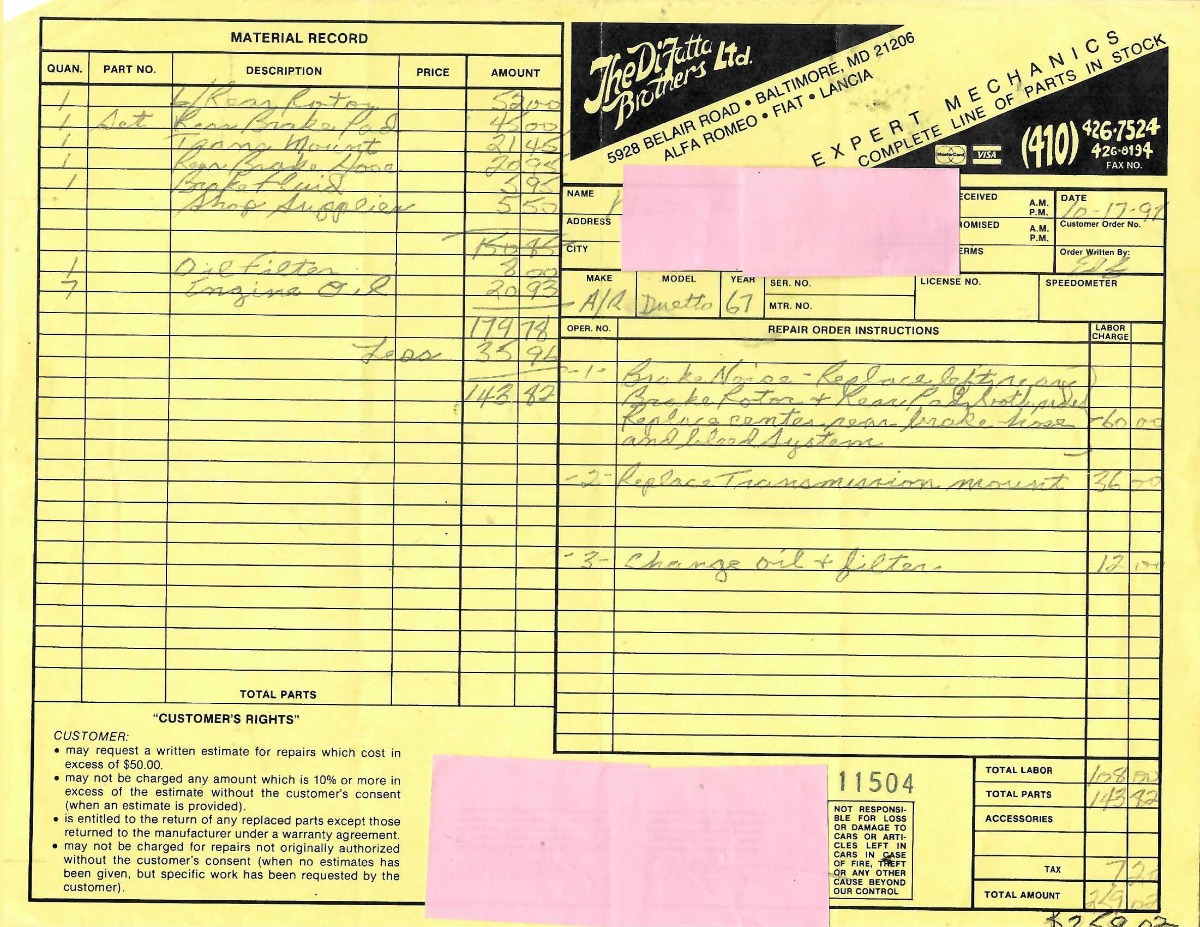 MATERIAL RECORD
QUAN. PART NO. DESCRIPTION PRICE AMOUNT
1 L/Rear Rotor 52 00
1 Set Rear Brake Pad 45 00
1 Trans Mount 21 45
1 Rear Brake Hose 20 95
1 Brake Fluid 5 95
Shop Supplies 5 50
150 85
1 Oil Filter 8 00
7 Engine Oil 20 93
179 78
Less 35 96
143 82
TOTAL PARTS
"CUSTOMER'S RIGHTS"
CUSTOMER:
• may request a written estimate for repairs which cost in
excess of $50.00.
• may not be charged any amount which is 10% or more in
excess of the estimate without the customer's consent
(when an estimate is provided).
• is entitled to the return of any replaced parts except those
returned to the manufacturer under a warranty agreement.
• may not be charged for repairs not originally authorized
without the customer's consent (when no estimates has
been given, but specific work has been requested by the
customer).
The DiFatta
Brothers Ltd.
5928 BELAIR ROAD • BALTIMORE, MD 21206
ALFA ROMEO • FIAT • LANCIA
EXPERT MECHANICS
COMPLETE LINE OF PARTS IN STOCK
MasterCard VISA
(410) 426-7524
426-8194
FAX NO.
NAME
ADDRESS
CITY
ECEIVED A.M. P.M.
OMISED A.M. P.M.
ERMS
DATE
10-17-97
Customer Order No.
Order Written By:
MAKE MODEL YEAR SER. NO. LICENSE NO. SPEEDOMETER
A/R Duetto 67 MTR. NO.
OPER. NO. REPAIR ORDER INSTRUCTIONS LABOR CHARGE
-1- Brake Noise - Replace left rear
Brake Rotor + Rear Pads
Replace center rear brake hose 60 00
and bleed System
-2- Replace Transmission mount 36 00
-3- Change oil & filter. 12 00
11504
NOT RESPONSI-
BLE FOR LOSS
OR DAMAGE TO
CARS OR ARTI-
CLES LEFT IN
CARS IN CASE
OF FIRE, THEFT
OR ANY OTHER
CAUSE BEYOND
OUR CONTROL
TOTAL LABOR 108 00
TOTAL PARTS 143 82
ACCESSORIES
TAX 7 20
TOTAL AMOUNT 259 02
$259.02